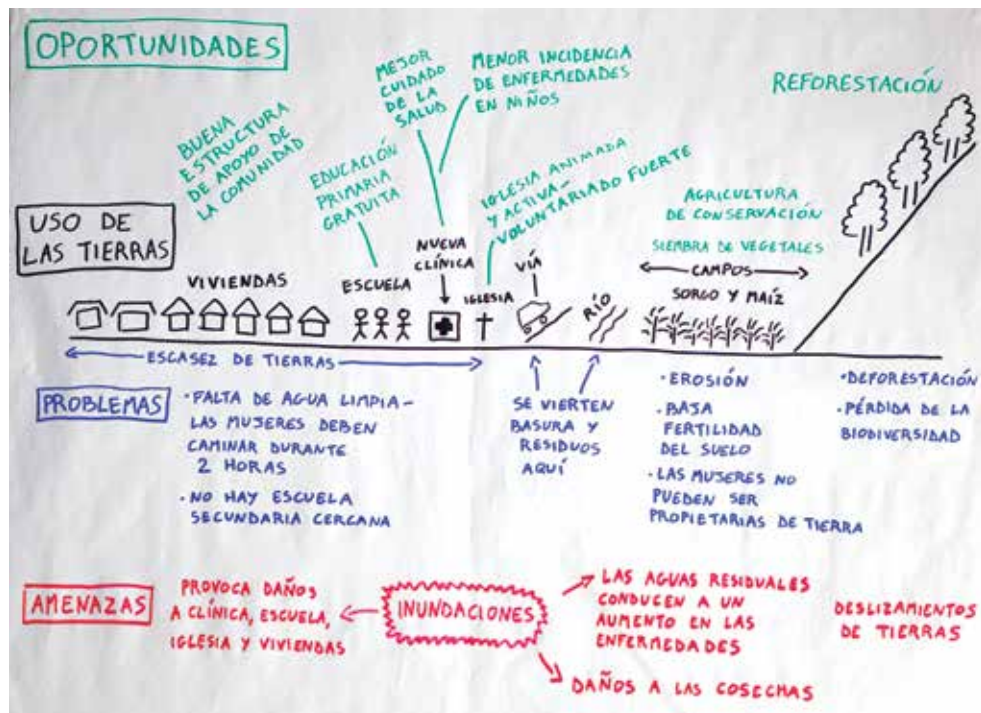 OPORTUNIDADES
BUENA
ESTRUCTURA
DE APOYO DE
LA COMUNIDAD
EDUCACIÓN
PRIMARIA
GRATUITA
MEJOR
CUIDADO
DE LA
SALUD
MENOR INCIDENCIA
DE ENFERMEDADES
EN NIÑOS
IGLESIA ANIMADA
Y ACTIVA–
VOLUNTARIADO FUERTE
REFORESTACIÓN
AGRICULTURA
DE CONSERVACIÓN
SIEMBRA DE VEGETALES
USO DE
LAS TIERRAS
VIVIENDAS
ESCUELA
NUEVA
CLÍNICA
IGLESIA
VÍA
RÍO
CAMPOS
SORGO Y MAÍZ
ESCASEZ DE TIERRAS
PROBLEMAS
· FALTA DE AGUA LIMPIA–
LAS MUJERES DEBEN
CAMINAR DURANTE
2 HORAS
· NO HAY ESCUELA
SECUNDARIA CERCANA
SE VIERTEN
BASURA Y
RESIDUOS
AQUÍ
· EROSIÓN
· BAJA
FERTILIDAD
DEL SUELO
· LAS MUJERES NO
PUEDEN SER
PROPIETARIAS DE TIERRA
· DEFORESTACIÓN
· PÉRDIDA DE LA
BIODIVERSIDAD
AMENAZAS
PROVOCA DAÑOS
A CLÍNICA, ESCUELA,
IGLESIA Y VIVIENDAS
INUNDACIONES
LAS AGUAS RESIDUALES
CONDUCEN A UN
AUMENTO EN LAS
ENFERMEDADES
DAÑOS A LAS COSECHAS
DESLIZAMIENTOS
DE TIERRAS